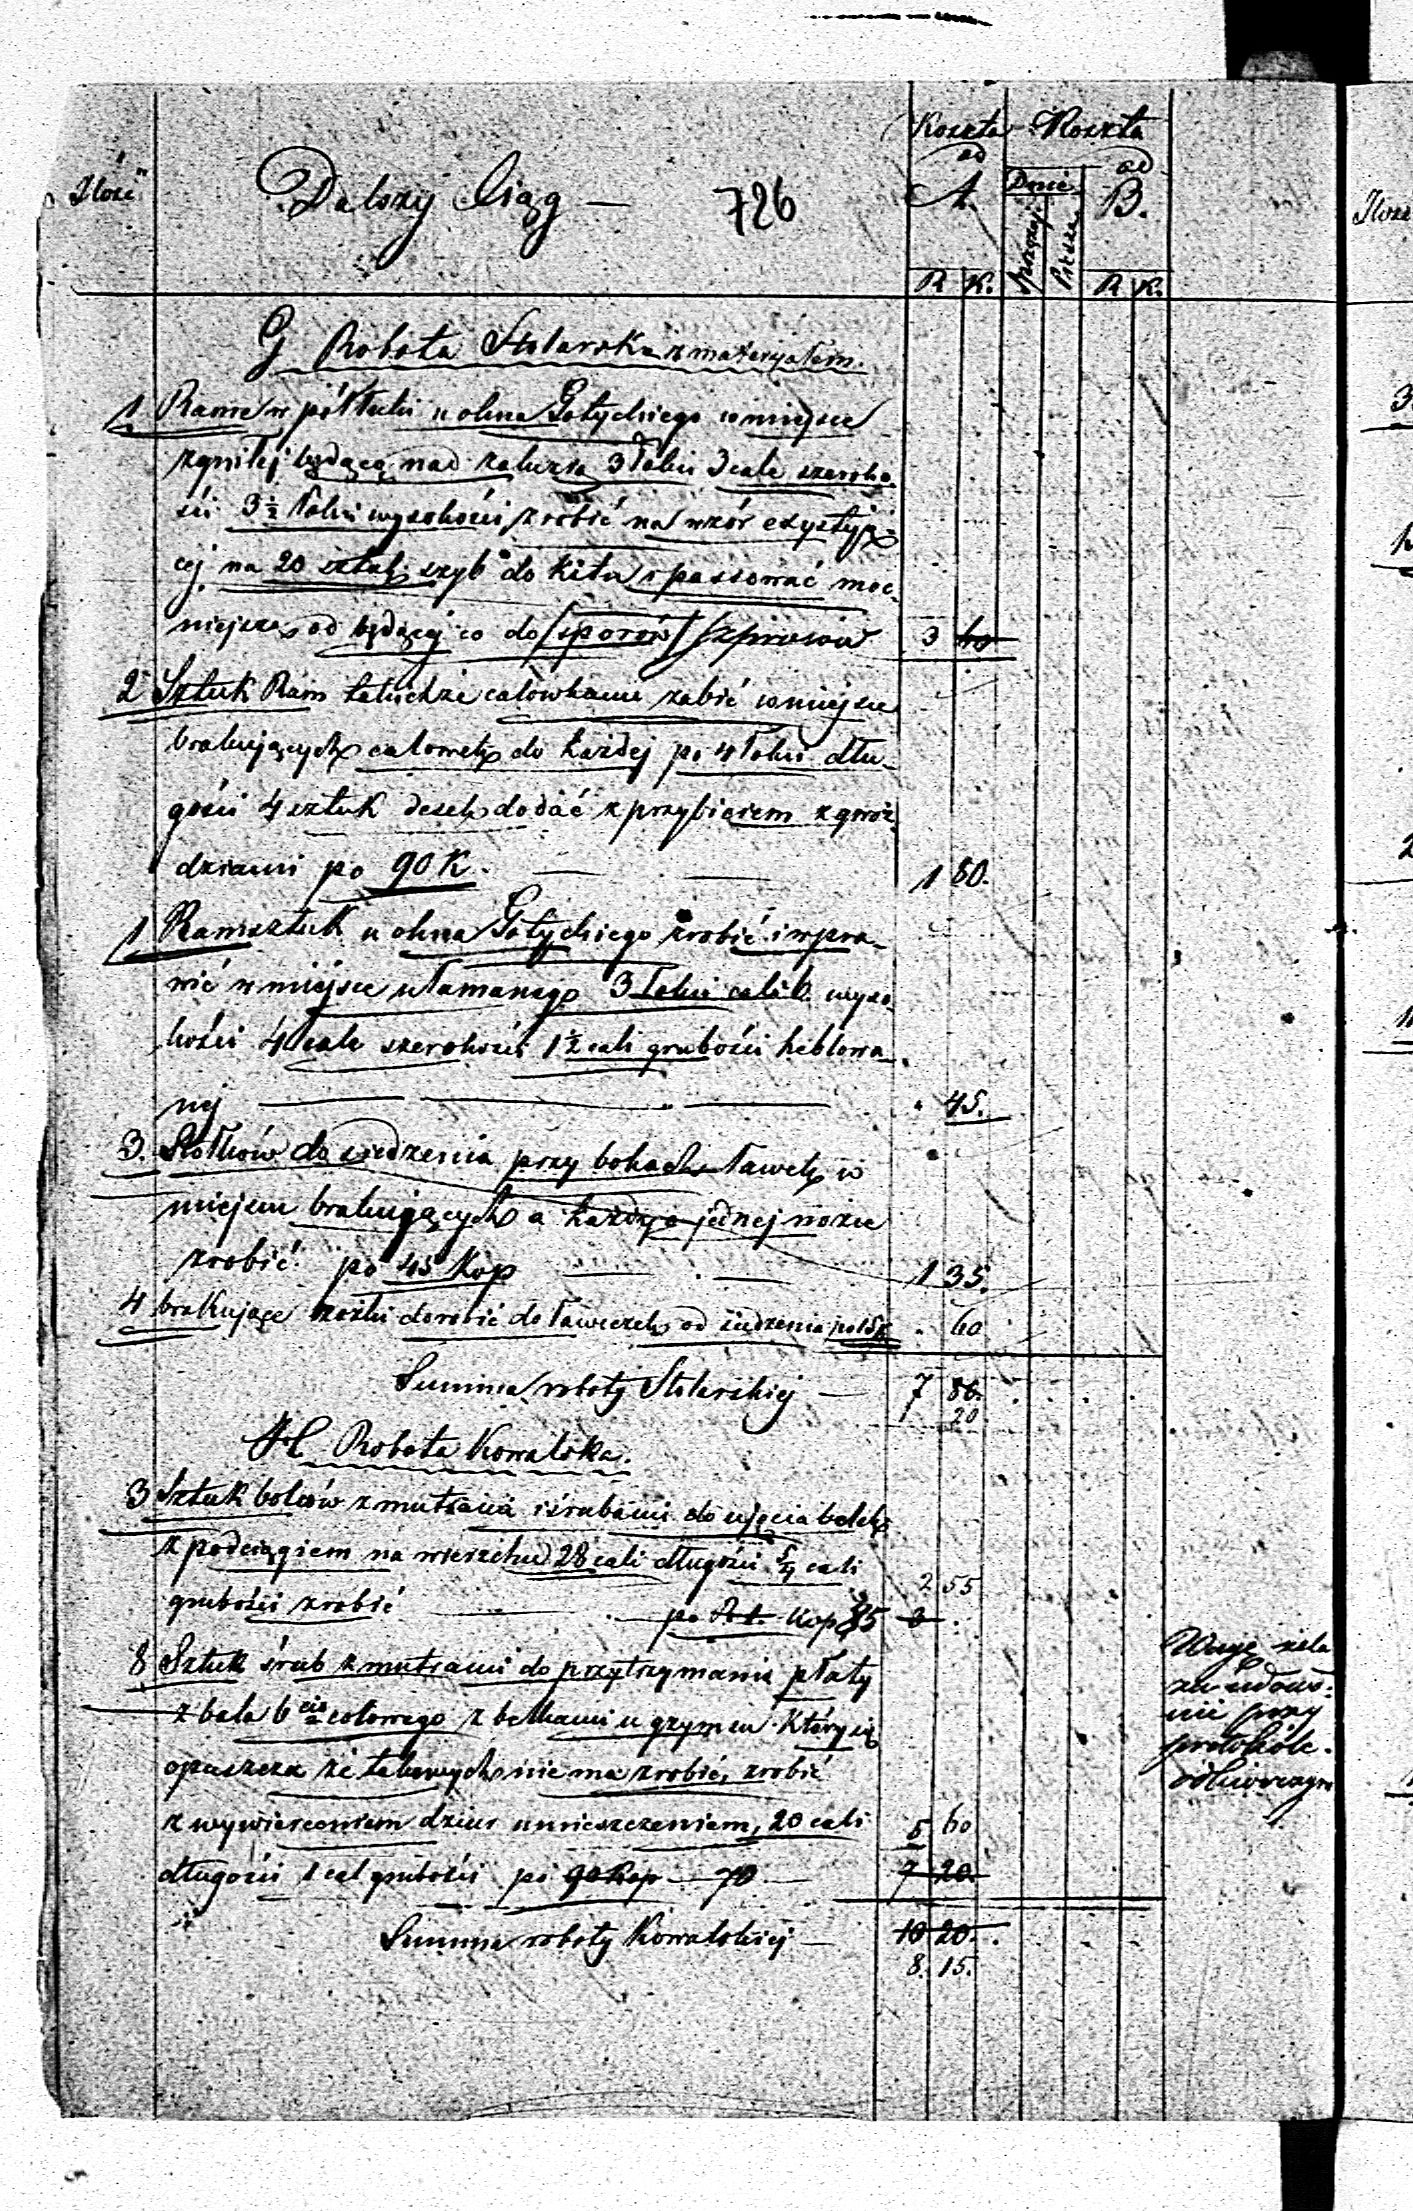 Ilość
Dalszy Ciąg — 726
Koszta ad A.
R K.
Dnie
sprzężaj
Piesze
Koszta ad B.
R K.
G Robota Stolarska z materyałem.
1 Ramę w półkulu u okna Gotyckiego w miejsce
zgniłej będącą nad 3 łokci 3 cale szeroko
ści 3½ łokci wysokości, zrobić na wzór exystują
cej na 20 sztuk szyb do kitu i passować moc
niejszą od będącej co do (sporów) Szprosów 3 60
2 Sztuk Ram calówkami zabić w miejsce
brakujących calówek do każdej po 4 łokci dłu
gości 4 sztuk desek dodać z przybiciem z gwoź
dziami po 90 K. — 1 80.
1 Ramsztuk u okna Gotyckiego zrobić i wpra
wić w miejsce ułamanego 3 łokci cali 6 wyso
kości 4 cale szerokości 1½ cali grubości heblowa
nej — 45.
3. Stołków do siedzenia przy bokach ławek w
miejscu brakujących a każdego jednej nodze
zrobić po 45 Kop — 1 35.
4 brakujące nóżki dorobić do ławeczek od siedzenia po 15 K 60
Summa roboty Stolarskiej — 7 80.
20
H Robota Kowalska.
3 Sztuk bolców z mutrami i śrubami do ujęcia belek
z podciągiem na wierzchu 28 cali długości 5/4 cali
grubości zrobić — po Kop 85 2 55
8 Sztuk śrub z mutrami do przytrzymania płaty
z bala 6cio calowego z belkami u gzymsu który się
opuszcza że takowych nie ma zrobić, zrobić
z wywierceniem dziur umieszczeniem, 20 cali 5 60
długości 1 cal grubości po 90 Kop — 70 — 7 20.
Summa roboty Kowalskiej — 10 20.
8. 15.
Wagę żela
za udowod
nić przy
protokóle
odbiorczym